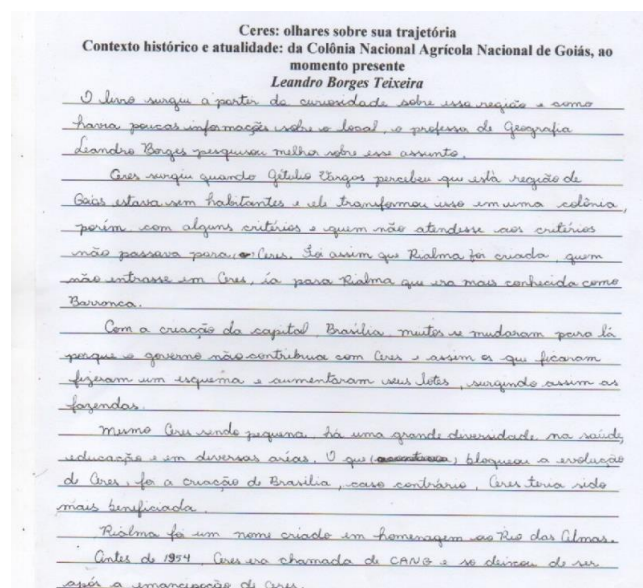 Ceres: olhares sobre sua trajetória
Contexto histórico e atualidade: da Colônia Nacional Agrícola Nacional de Goiás, ao
momento presente
Leandro Borges Teixeira
O livro surgiu a partir da curiosidade sobre essa região e como
havia poucas informações sobre o local, o professor de Geografia
Leandro Borges pesquisou melhor sobre esse assunto.
Ceres surgiu quando Getulio Vargas percebeu que está região de
Goiás estava sem habitantes e ele transformou isso em uma colônia,
porém com alguns critérios e quem não atendesse aos critérios
não passava para Ceres. Foi assim que Rialma foi criada, quem
não entrasse em Ceres, ia para Rialma que era mais conhecida como
Barranca.
Com a criação da capital Brasília muitos se mudaram para lá
porque o governo não contribuia com Ceres e assim os que ficaram
fizeram um esquema e aumentaram seus lotes, surgindo assim as
fazendas.
Mesmo Ceres sendo pequena, há uma grande diversidade na saúde,
educação e em diversas arias. O que bloqueou a evolução
de Ceres, foi a criação de Brasília, caso contrário, Ceres teria sido
mais beneficiada.
Rialma foi um nome criado em homenagem ao Rio das Almas.
Antes de 1954, Ceres era chamada de CANG e so deixou de ser
após a emancipação de Ceres.